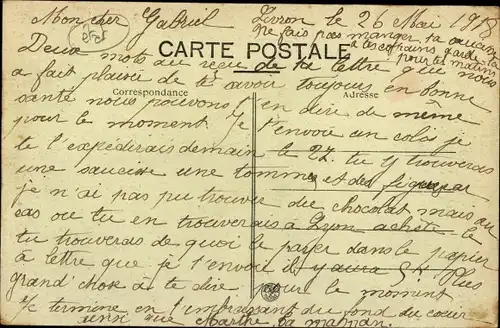 Mon cher Gabriel Livron le 26 Mai 1918
Ne fais pas manger ta saucisse
a tes copains garde la
pour tes mains
CARTE POSTALE
Deux mots au reçu de ta lettre qui nous
a fait plaisir de te savoir toujours en bonne
Correspondance Adresse
santé nous pouvons t'en dire de même
pour le moment. Je t'envoie un colis je
te l'expédirais demain le 27. tu y trouveras
une saucisse une tomme et des figues
je n'ai pas pu trouver du chocolat mais au
sas ou tu en trouverais a Lyon achète le
tu trouveras de quoi le payer dans le papier
à lettre que je t'envoie il y aura 5 Plus
grand chose à te dire pour le moment
Je termine en t'embrassant du fond du cœur
ainsi que Marthe, ta maman